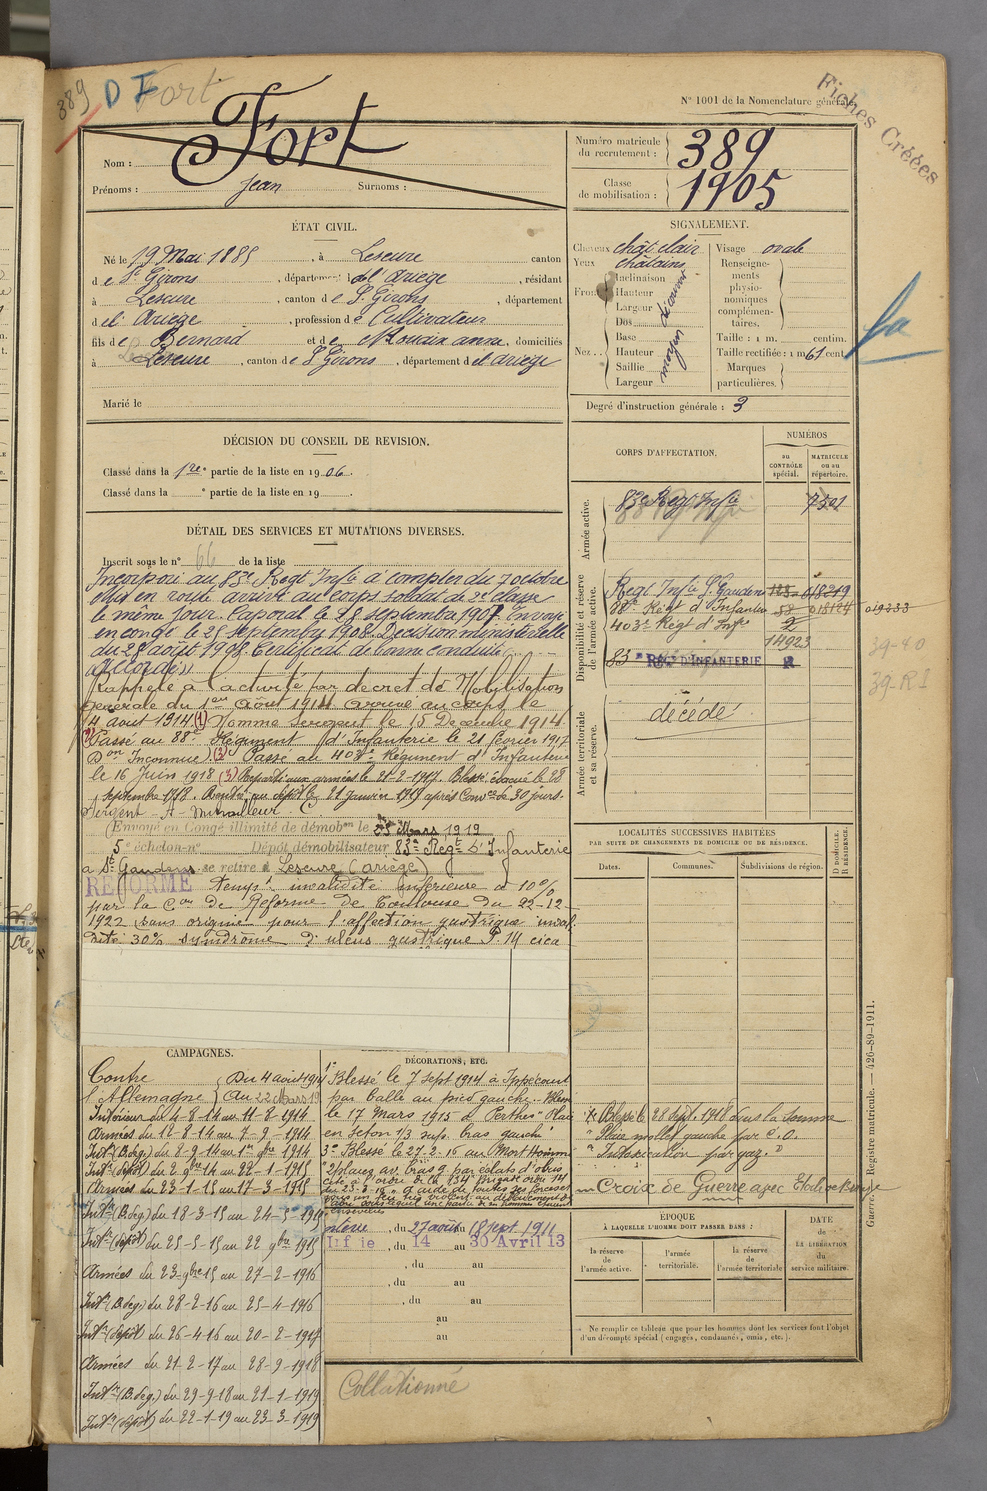 389 D F Fort
N° 1001 de la Nomenclature générale.
Fiches Créées
Nom : Fort
Prénoms : Jean Surnoms :
Numéro matricule du recrutement : 389
Classe de mobilisation : 1905
ÉTAT CIVIL.
Né le 19 Mai 1885, à Lescure canton
de St Girons, département de l'Ariège, résidant
à Lescure, canton de St Girons, département
de l'Ariège, profession de Cultivateur
fils de Bernard et de anne, domiciliés
à Lescure, canton de St Girons, département de l'Ariège
Marié le
SIGNALEMENT.
Cheveux chât clair
Yeux châtains
Front
Inclinaison
Hauteur
Largeur
découvert
Nez
Dos
Base
Hauteur
Saillie
Largeur
moyen
Visage ovale
Renseignements physionomiques complémentaires.
Taille : 1 m. centim.
Taille rectifiée : 1 m 61 cent.
Marques particulières.
Degré d'instruction générale : 3
DÉCISION DU CONSEIL DE REVISION.
Classé dans la 1re partie de la liste en 1906.
Classé dans la ° partie de la liste en 19 .
DÉTAIL DES SERVICES ET MUTATIONS DIVERSES.
Inscrit sous le n° 66 de la liste
Incorporé au 83e Regt Infie à compter du 7 octobre
en route arrivé au corps soldat de 2e classe
le même jour. Caporal le 28 septembre 1907. Envoyé
en congé le 25 septembre 1908. Decision ministerielle
du 28 août 1908. Certificat de bonne conduite
"accordé"
Rappelé à l'activité par decret de Mobilisation
Générale du 1er Août 1914 arrivé au corps le
4 août 1914 (1) Nommé Sergent le 15 Decembre 1914
Passé au 88e Régiment d'Infanterie le 21 fevrier 1917
Don Inconnue) (2) Passé au 403e Régiment d'Infanterie
le 16 Juin 1918 (3) Reparti aux armées le 21-2-1917. Blessé évacué le 28
Septembre 1918. Rentré au dépôt le 21 janvier 1919 après Conv ce de 30 jours.
Sergent - A - mitrailleur
Envoyé en Congé illimité de démobon le 23 Mars 1919
5e échelon-n° Dépôt démobilisateur 83e Régt d'Infanterie
a St Gaudens se retire à Lescure (Ariège)
REFORMÉ tempre invalidité inferieure à 10%
par la Con de Reforme de Toulouse du 22-12-
1922 sans origine pour l'affection gastrique inval-
dité 30% syndrôme d'ulcus gastrique P. 14 cica
CORPS D'AFFECTATION.
NUMÉROS
au CONTRÔLE spécial.
MATRICULE ou au répertoire.
Armée active.
83e Regt Infie 7501
Disponibilité et réserve de l'armée active.
Regt Infie St Gaudens 128 018219
88e Régt d'Infanterie 58 018124 019233
403e Régt d'Infie 2
14923
83e RÉGt D'INFANTERIE
39-40
39-R I
Armée territoriale et sa réserve.
décédé
LOCALITÉS SUCCESSIVES HABITÉES
PAR SUITE DE CHANGEMENTS DE DOMICILE OU DE RÉSIDENCE.
Dates. Communes. Subdivisions de région.
D DOMICILE. R RÉSIDENCE.
CAMPAGNES.
Contre l'Allemagne
Du 4 aout 1914
au 22 Mars 19
Intérieur du 4-8-14 au 11-8-1914
Armées du 12-8-14 au 7-9-1914
Intr (B.deg.) du 8-9-14 au 1er 9bre 1914
Intr (dépôt) du 2 9bre 14 au 22-1-1915
Armées du 23-1-15 au 17-3-1915
Intr (B.deg.) du 18-3-15 au 24-5-1915
Intr (dépôt) du 25-5-15 au 22 9bre 1915
Armées du 23-9bre 15 au 27-2-1916
Intr (B.deg.) du 28-2-16 au 25-4-1916
Intr (dépôt) du 26-4-16 au 20-2-1917
Armées du 21-2-17 au 28-9-1918
Intr (B.deg.) du 29-9-18 au 21-1-1919
Intr (dépôt) du 22-1-19 au 23-3-1919
DÉCORATIONS, ETC.
1° Blessé le 7 Sept 1914 à Ippécourt
par balle au pied gauche. Blessé
le 17 Mars 1915 à Perthes "Plaie
en seton 1/3 sup. bras gauche"
3° Blessé le 27-2-16 au Mort Homme
"2 plaies av. bras g. par éclats d'obus
Cité à l'ordre de la 134e Brigade ordre 14
du 23-3-16
du 27 août au 18 sept. 1911
Inf ie, du 14 au 30 Avril 13
, du au
, du au
, du au
au
au
Blessé le 28 Sept. 1918 dans la Somme
" Plaie mollet gauche par é. o.
" Intoxication par gaz. "
Croix de Guerre avec Etoile Bronze
ÉPOQUE
À LAQUELLE L'HOMME DOIT PASSER DANS :
la réserve de l'armée active.
l'armée territoriale.
la réserve de l'armée territoriale
DATE de LA LIBÉRATION du service militaire.
Ne remplir ce tableau que pour les hommes dont les services font l'objet
d'un décompte spécial (engagés, condamnés, omis, etc.).
Guerre. Registre matricule. — 426-89-1911.
Collationné